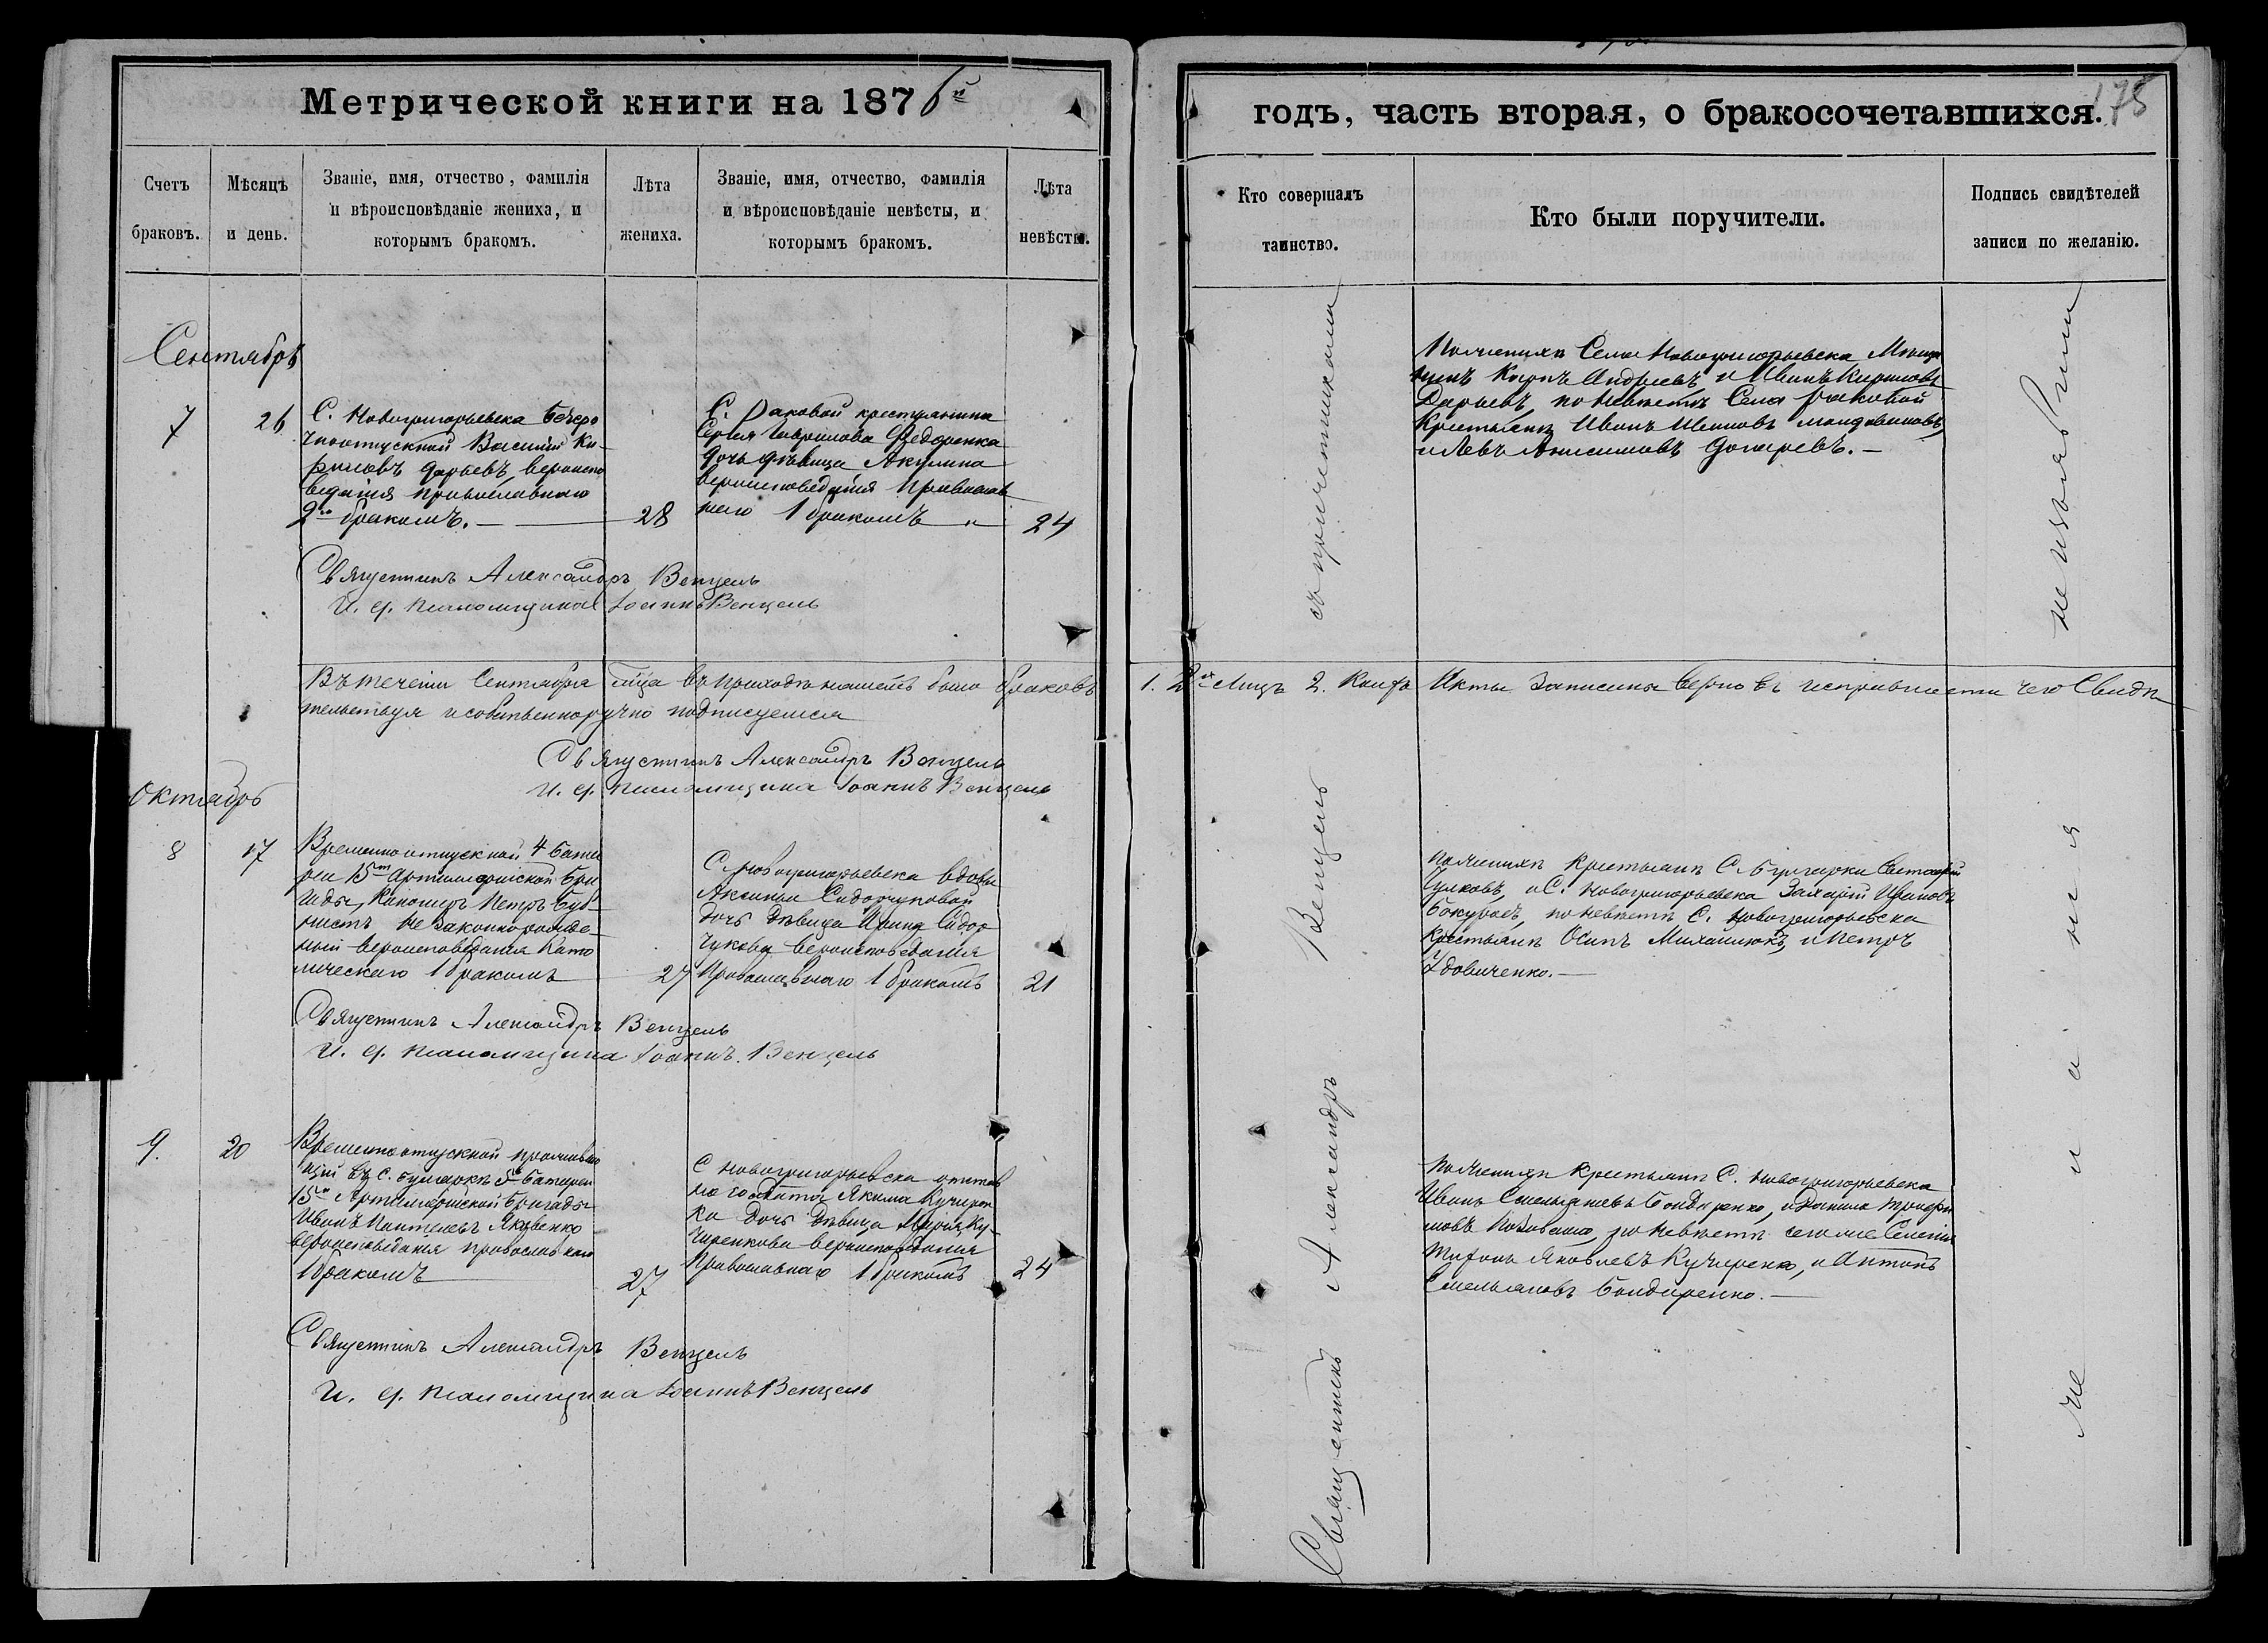 Метрической книги на 1876й
годъ, часть вторая, о бракосочетавшихся.
175
Счетъ
браковъ.
Мѣсяцъ
и день.
Званіе, имя, отчество, фамилія
и вѣроисповѣданіе жениха, и
которымъ бракомъ.
Лѣта
жениха.
Званіе, имя, отчество, фамилія
и вѣроисповѣданіе невѣсты, и
которымъ бракомъ.
Лѣта
невѣсты.
Кто совершалъ
таинство.
Кто были поручители.
Подпись свидѣтелей
записи по желанію.
Сентябрь
7
26
С. Новогригорьевска
Василій Ки-
риловъ Дарьевъ вероиспо
веданія православнаго
2мъ бракомъ.
28
С. Раковой крестьянина
Сергія Гаврилова Федоренка
дочь дѣвица Акулина
вероисповеданія православ
наго 1 бракомъ
24
По женихѣ Села Новогригорьевска
Карпъ Андреевъ и Иванъ Кириловъ
Дарьевъ по невѣстѣ Села Раковой
Крестьяне Иванъ Ивановъ
и Левъ Анисимовъ
Священникъ Александръ Венцель
И. д. псаломщика Іоаннъ Венцель
Въ теченіи Сентября м̃ца въ приходѣ нашемъ было браковъ 1. 2хъ лицъ 2. Акты записаны верно въ исправности чего Свидѣ
тельствуя и собственноручно подписуемся
Священникъ Александръ Венцель
И. д. псаломщика Іоаннъ Венцель
Октябрь
8
17
Временно отпускной 4 Бата
реи 15й Артилерійской Бри
гады, Канониръ Петръ
не законнорожде-
ный вероисповеданія Като
лическаго 1 бракомъ
27
С. Новогригорьевска вдовы
Аксиньи Сидорчуковой
дочь дѣвица Ирина Сидор
чукова вероисповеданія
Православнаго 1 бракомъ
21
По женихѣ Крестьяне С. Булгарки
и С. Новогригорьевска Захарій Ивановъ
по невѣстѣ С. Новогригорьевска
Крестьяне Осипъ Михалюкъ, и Петръ
Удовиченко.
Священникъ Александръ Венцель
И. д. псаломщика Іоаннъ Венцель
9.
20
Временно отпускной проживаю
щій въ С. Булгаркѣ 5й Батареи
15й Артилерійской Бригады
Иванъ Пантелеевъ Яковенко
вероисповеданія православнаго
1 бракомъ
27
С Новогригорьевска отстав
наго солдата Якима Кучерен
ка дочь дѣвица Марія Ку-
черенкова вероисповеданія
Православнаго 1 бракомъ
24
По женихѣ Крестьяне С. Новогригорьевска
Иванъ Емельяневъ Бондаренко, и Данила
по невѣстѣ сего же Селенія
Яковлевъ Кучеренко, и Антонъ
Емельяновъ Бондаренко.
Священникъ Александръ Венцель
И. д. псаломщика Іоаннъ Венцель
Священникъ Александръ Венцель съ причетникомъ